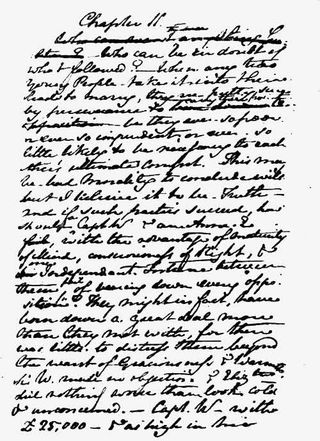 Chapter 11.
Who can be in doubt of
what followed? When any two
Young People take it into their
heads to marry, they are pretty sure
by perseverance to carry their point
be they ever so poor
or ever so imprudent, or ever so
little likely to be necessary to each
other's ultimate comfort. This may
be bad Morality to conclude with
but I believe it to be Truth
and if such parties succeed, how
should Capt W & an Anne E
fail, with the advantage of maturity
of Mind, consciousness of Right, &
one Independant Fortune between
them of bearing down every oppo
sition? They might in fact, have
born down a great deal more
than they met with, for there
was little to distress them beyond
the want of Graciousness & Warmth
Sir W. made no objection, & Eliz:th
did nothing worse than look cold
& unconcerned. Capt. W with
£25,000 & as high in his